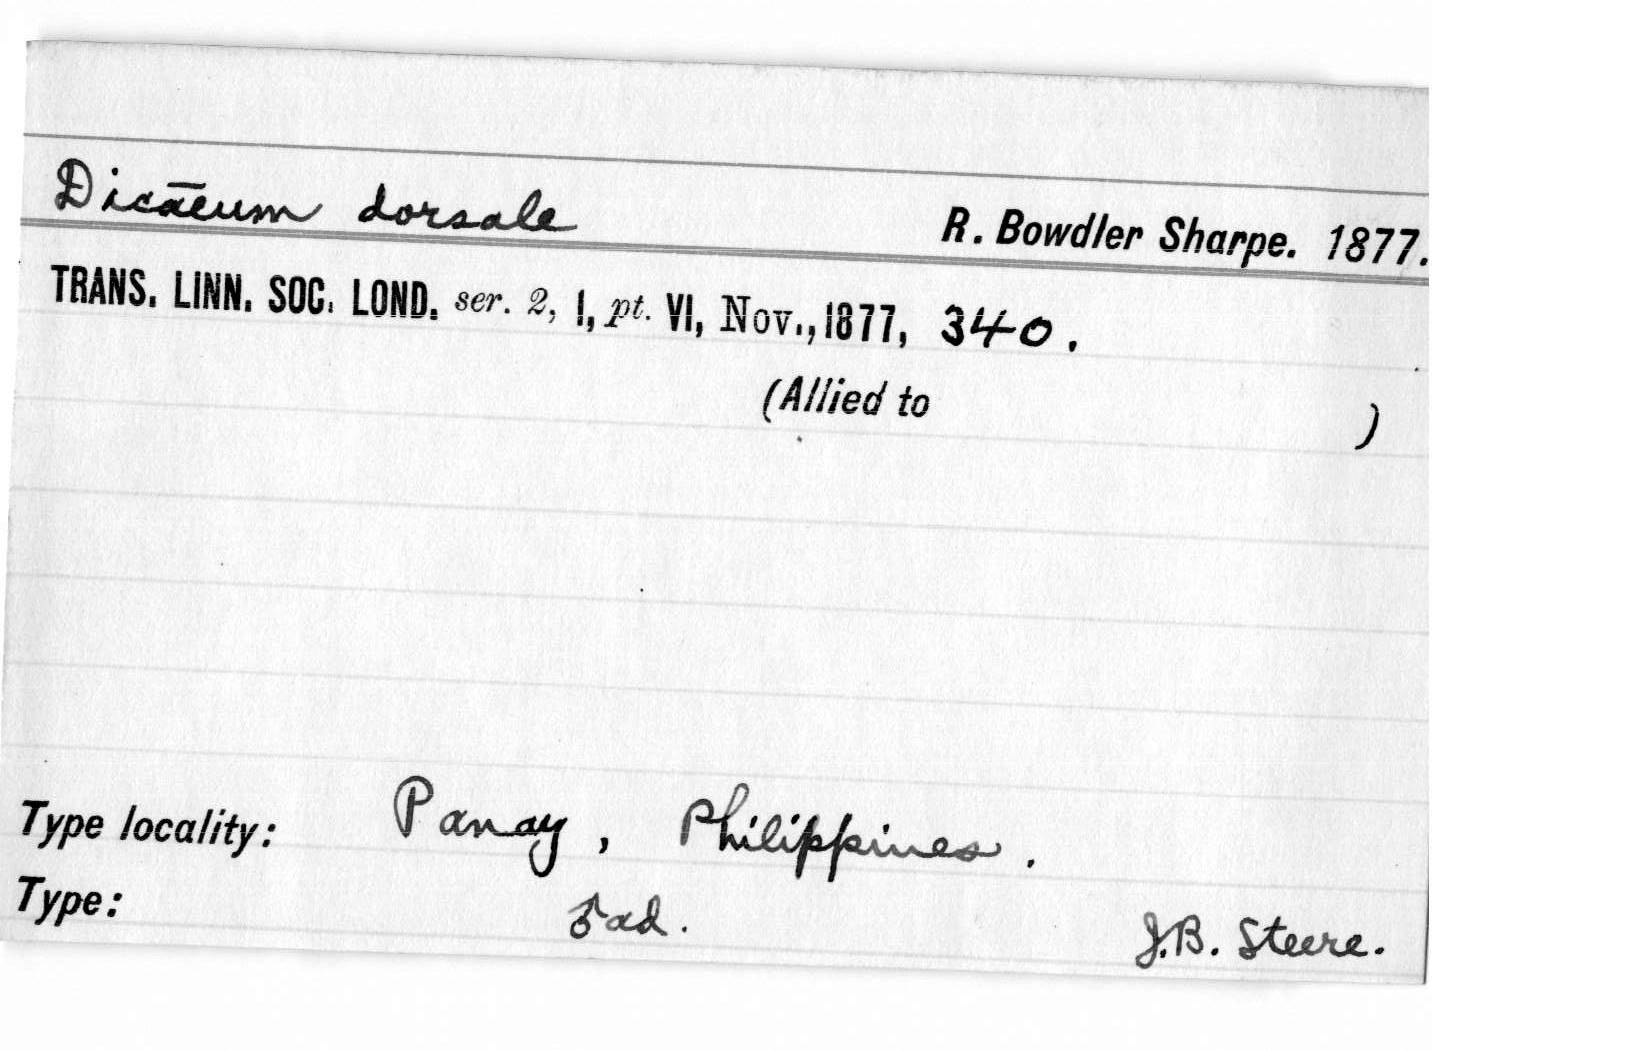 Dicaeum dorsale R. Bowdler Sharpe. 1877.
TRANS. LINN. SOC. LOND. ser. 2, I, pt. VI, Nov., 1877, 340.
(Allied to )
Type locality: Panay, Philippines.
Type: ♂ ad. J.B. Steere.